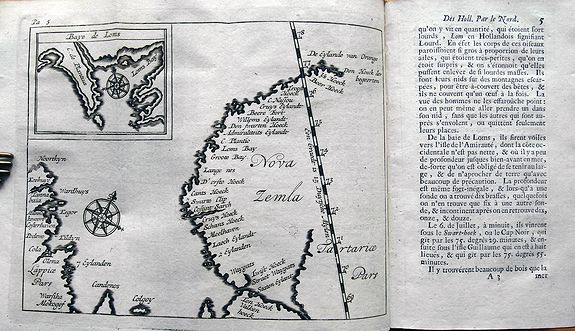 Pa 5
Baye de Loms
C. de Plancio
Loms Bay
De Eylandt van Orange
Den Hoeck der begeerten
Yss Hoeck
C. Nassou
Cruys Eylandt
Beere Fort
Willems Eylandt
Den swerten Hoeck
Admiraliteits Eylandt
C. Plantic
Loms Bay
Groote Bay
Lange nes
Nova
Zemla
Cants Hoeck
Swarm Clip
Cruys Hoeck
Schans Hoeck
Meelhaven
Laech Eylandt
2 Eylanden
Noordkyn
Wardhuys
Kegor
Kildyn
Cola
Olena
7 Eylanden
Lappiæ Pars
Warsiha
Malogei
Candenos
Colgoy
Waygats
Straet Waygats
Staten Eylandt
Tartariæ
Pars
Des Holl. Par le Nord. 5
qu'on y vit en quantité, qui étoient fort
lourds, Lom en Hollandois signifiant
Lourd. En efet les corps de ces oiseaux
paroissoient si gros à proportion de leurs
aîles, qui étoient tres-petites, qu'on en
étoit surpris, & on s'étonnoit qu'elles
pussent enlever de si lourdes masses. Ils
font leurs nids sur des montagnes escar-
pées, pour être à-couvert des bêtes, &
ils ne couvent qu'un œuf à la fois. La
vue des hommes ne les effarouche point;
on en peut même aller prendre un dans
son nid, sans que les autres qui sont au-
près s'envolent, ou quittent seulement
leurs places.
De la baie de Loms, ils firent voiles
vers l'isle de l'Amirauté, dont la côte oc-
cidentale n'est pas nette, & où il y a peu
de profondeur jusques bien-avant en mer,
de-sorte qu'on est obligé de se tenir au lar-
ge, & de n'aprocher de terre qu'avec
beaucoup de précaution. La profondeur
est même fort-inégale, & lors-qu'à une
sonde on a trouvé dix brasses, quelquefois
on n'en trouve que six à une autre son-
de, & incontinent après on en retrouve dix,
onze, & douze.
Le 6. de Juillet, à minuit, ils vinrent
sous le Swart-hoek, ou le Cap Noir, qui
gît par les 75. degrés 29. minutes, & en-
suite sous l'isle Guillaume qui en est à huit
lieues, & qui gît par les 75. degrés 55.
minutes.
Il y trouvérent beaucoup de bois que la
A 3 mer